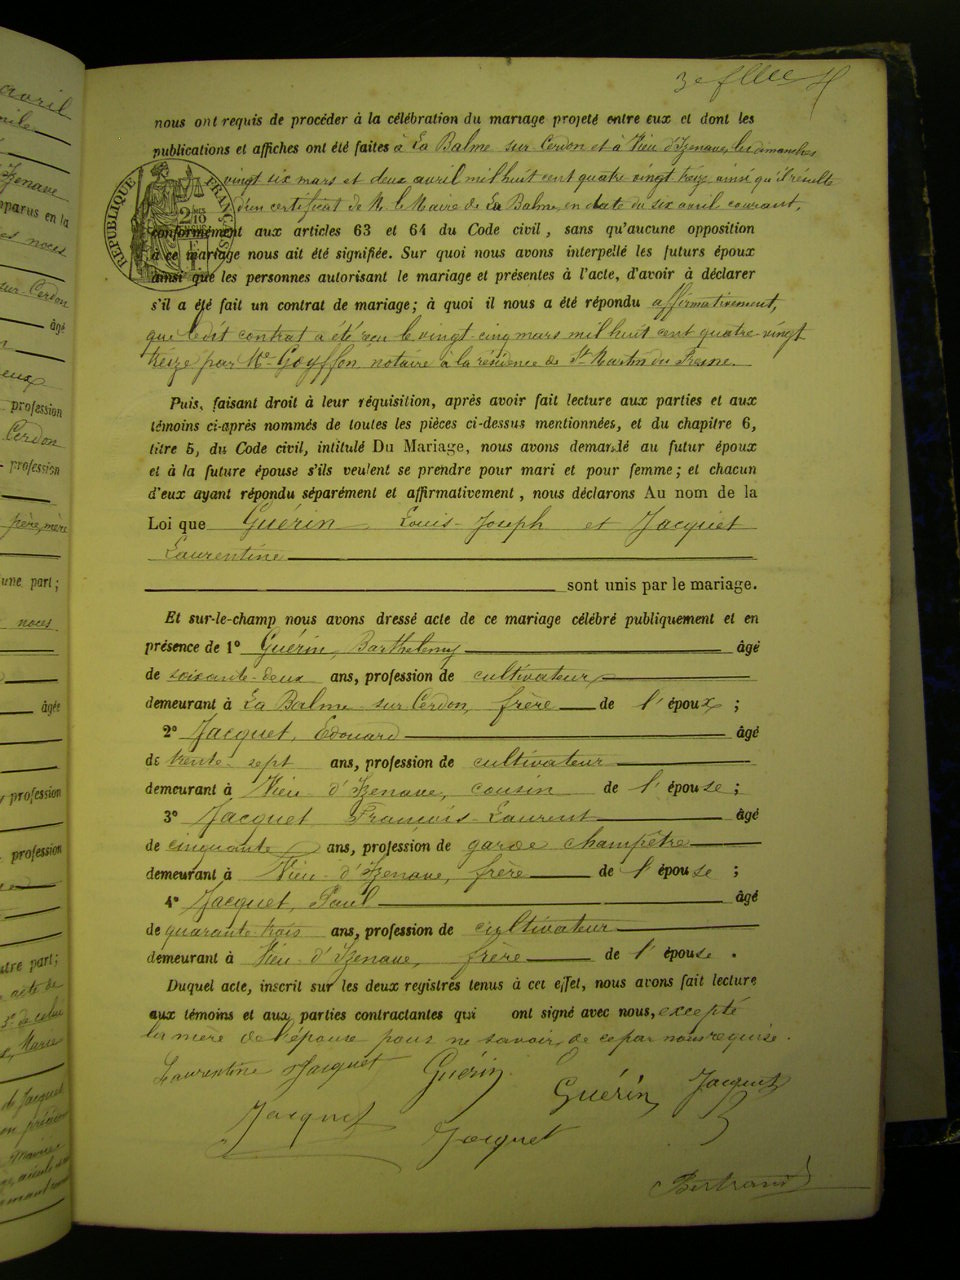 3e flle
nous ont requis de procéder à la célébration du mariage projeté entre eux et dont les
publications et affiches ont été faites à La Balme sur Cerdon et à Vieu d'Izenave, les dimanches
vingt six mars et deux avril mil huit cent quatre vingt treize ainsi qu'il résulte
d'un certificat de M. le Maire de La Balme, en date du six avril courant,
conformément aux articles 63 et 64 du Code civil, sans qu'aucune opposition
à ce mariage nous ait été signifiée. Sur quoi nous avons interpellé les futurs époux
ainsi que les personnes autorisant le mariage et présentes à l'acte, d'avoir à déclarer
s'il a été fait un contrat de mariage; à quoi il nous a été répondu affirmativement,
que ledit contrat a été reçu le vingt-cinq mars mil huit cent quatre-vingt
treize par Me Goyffon, notaire à la résidence de St Martin du Fresne.
Puis, faisant droit à leur réquisition, après avoir fait lecture aux parties et aux
témoins ci-après nommés de toutes les pièces ci-dessus mentionnées, et du chapitre 6,
titre 5, du Code civil, intitulé Du Mariage, nous avons demandé au futur époux
et à la future épouse s'ils veulent se prendre pour mari et pour femme; et chacun
d'eux ayant répondu séparément et affirmativement, nous déclarons Au nom de la
Loi que Guérin Louis-Joseph et Jacquet
Laurentine
sont unis par le mariage.
Et sur-le-champ nous avons dressé acte de ce mariage célébré publiquement et en
présence de 1° Guérin, Barthelemy âgé
de soixante-deux ans, profession de cultivateur,
demeurant à La Balme sur Cerdon, frère de l'époux;
2° Jacquet, Edouard âgé
de trente-sept ans, profession de cultivateur
demeurant à Vieu-d'Izenave, cousin de l'épouse;
3° Jacquet François-Laurent âgé
de cinquante ans, profession de garde champêtre
demeurant à Vieu-d'Izenave, frère de l'épouse;
4° Jacquet, Paul âgé
de quarante-trois ans, profession de cultivateur
demeurant à Vieu-d'Izenave, frère de l'épouse.
Duquel acte, inscrit sur les deux registres tenus à cet effet, nous avons fait lecture
aux témoins et aux parties contractantes qui ont signé avec nous, excepté
la mère de l'épouse pour ne savoir, de ce par nous requise.
Laurentine Jacquet Guérin Guérin Jacquet
Jacquet Jacquet
Bertrand
RÉPUBLIQUE FRANÇAISE
2/10
avril
Izenave
comparus en la
noces
sur Cerdon
âgé
profession
Cerdon
profession
père, mère
une part;
noces
âgée
profession
profession
autre part;
acte de
3° de celui
Marie
de Jacquet